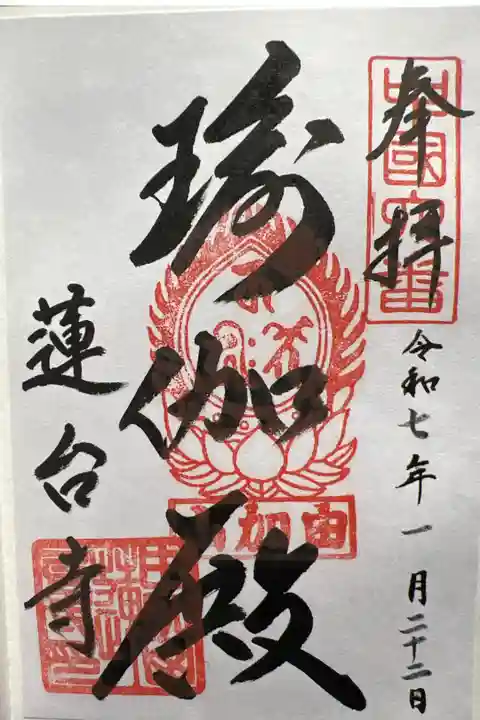 奉拝
令和七年一月二十二日
瑜伽殿
蓮台寺
由加山